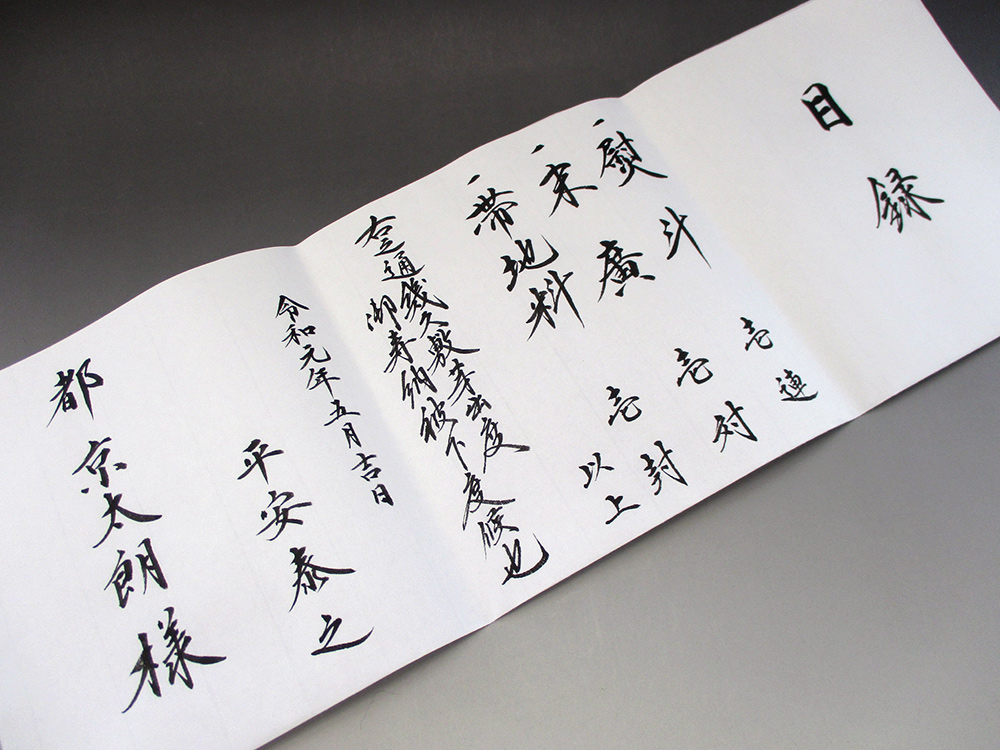 目録
一熨斗 壱連
一末廣 壱対
一帯地料 壱封
以上
右之通幾久敷芽出度
御寿納被下度候也
令和元年五月吉日
平安泰之
都京太朗様